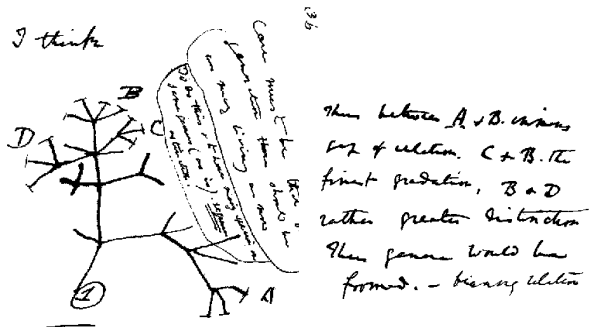 36
I think
B
D
C
A
1
Case must be that
one generation then should be
as many living as now
To do this & to have many species in
same genus (as is) requires
extinction.
Thus between A & B. immense
gap of relation. C & B. the
finest gradation, B & D
rather greater distinction
Thus genera would be
formed. — bearing relation